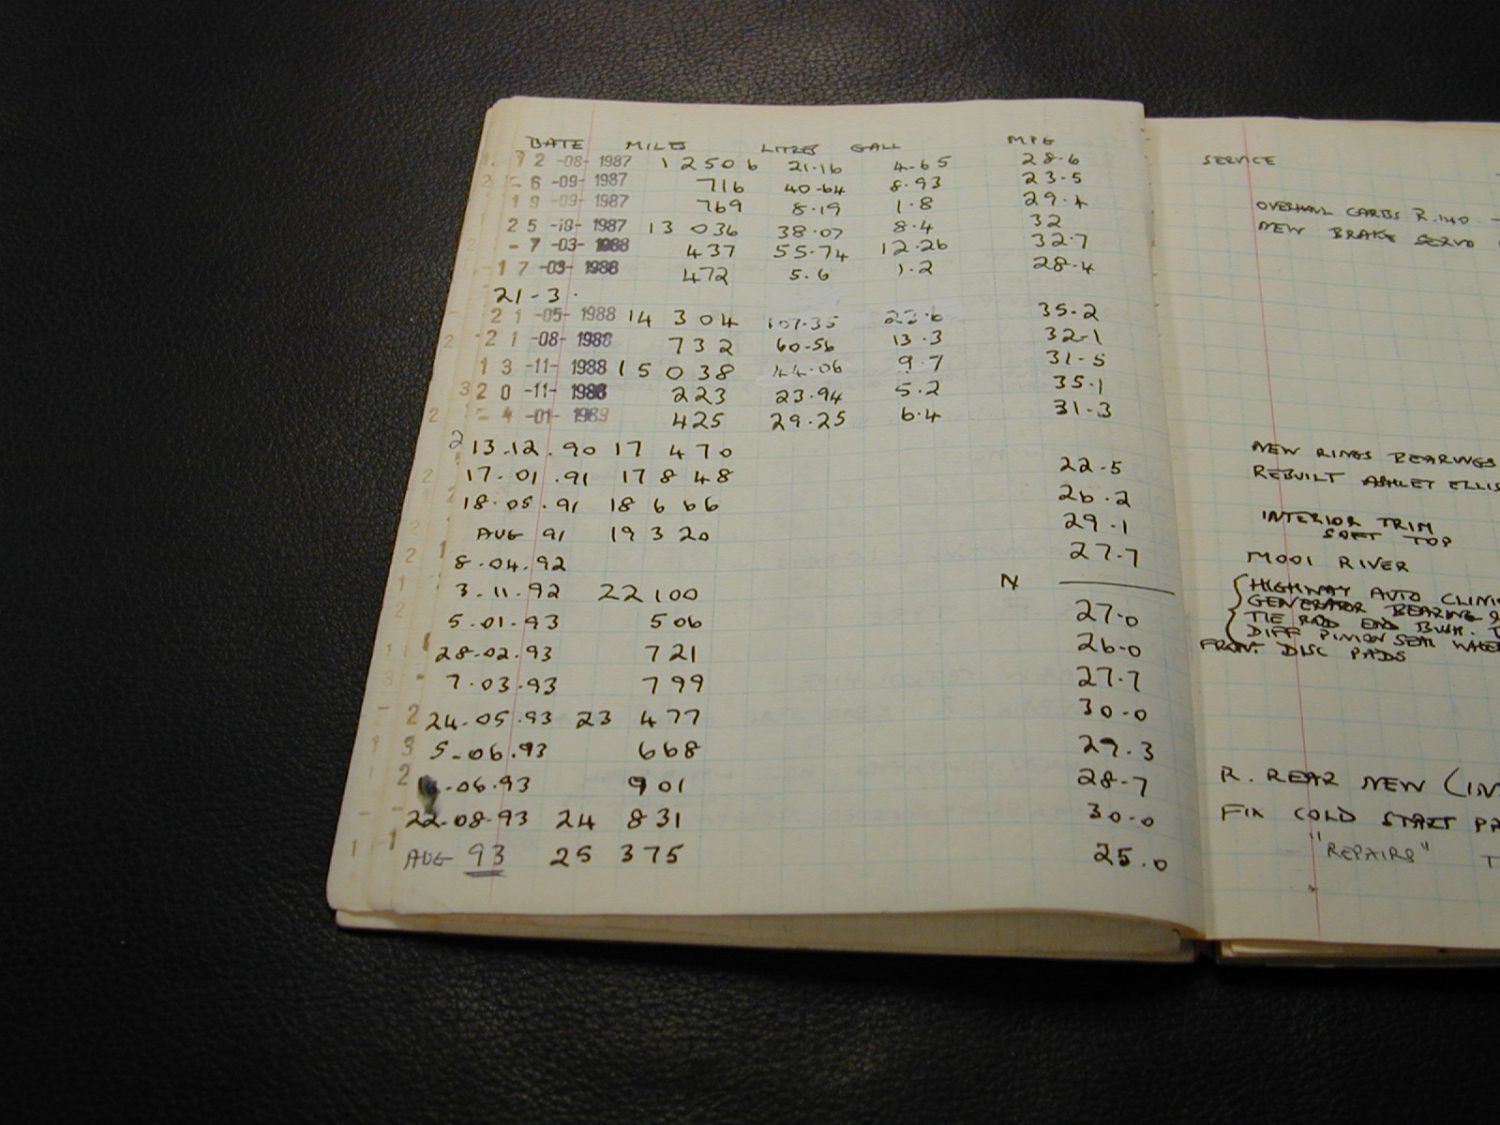 DATE MILES LITRES GALL MPG
2 -08- 1987 12506 21.16 4.65 28.6
6 -09- 1987 716 40.64 8.93 23.5
-09- 1987 769 8.19 1.8 29.4
25 -10- 1987 13 036 38.07 8.4 32
- 7 -03- 1988 437 55.74 12.26 32.7
17 -03- 1988 472 5.6 1.2 28.4
21-3.
21 -05- 1988 14 304 107.35 23.6 35.2
21 -08- 1988 732 60.56 13.3 32.1
13 -11- 1988 15 038 44.06 9.7 31.5
20 -11- 1988 223 23.94 5.2 35.1
- 4 -01- 1989 425 29.25 6.4 31.3
13.12.90 17 470
17.01.91 17 848 22.5
18.05.91 18 666 26.2
AUG 91 19 320 29.1
8.04.92 27.7
3.11.92 22100 N
5.01.93 506 27.0
28.02.93 721 26.0
7.03.93 799 27.7
24.05.93 23 477 30.0
5-06.93 668 29.3
.06.93 901 28.7
22.08.93 24 831 30.0
AUG 93 25 375 25.0
SERVICE
OVERHAUL CARBS R.140
NEW BRAKE SERVO
NEW RINGS BEARINGS
REBUILT ASHLEY ELLIS
INTERIOR TRIM
SOFT TOP
MOOI RIVER
HIGHWAY AUTO CLINI
GENERATOR BEARING
TIE ROD END BUSH.
DIFF PINION SEAL
FRONT DISC PADS
R. REAR NEW (IN
FIX COLD START
"REPAIRS"